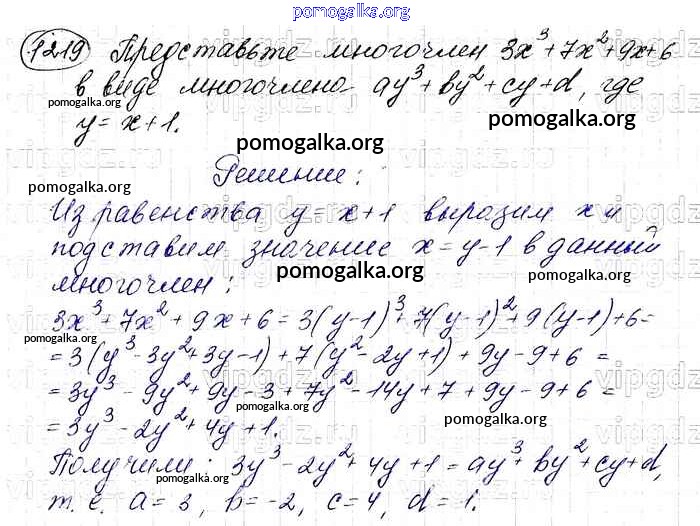 pomogalka.org
1219 Представьте многочлен 3x³+7x²+9x+6
в виде многочлена ay³+by²+cy+d, где
pomogalka.org
y=x+1.
pomogalka.org
pomogalka.org
Решение:
pomogalka.org
Из равенства y=x+1 выразим x и
подставим значение x=y-1 в данный
многочлен:
pomogalka.org
pomogalka.org
3x³+7x²+9x+6=3(y-1)³+7(y-1)²+9(y-1)+6=
pomogalka.org
=3(y³-3y²+3y-1)+7(y²-2y+1)+9y-9+6=
=3y³-9y²+9y-3+7y²-14y+7+9y-9+6=
pomogalka.org
pomogalka.org
=3y³-2y²+4y+1.
Получили: 3y³-2y²+4y+1=ay³+by²+cy+d,
pomogalka.org
т.е. a=3, b=-2, c=4, d=1.